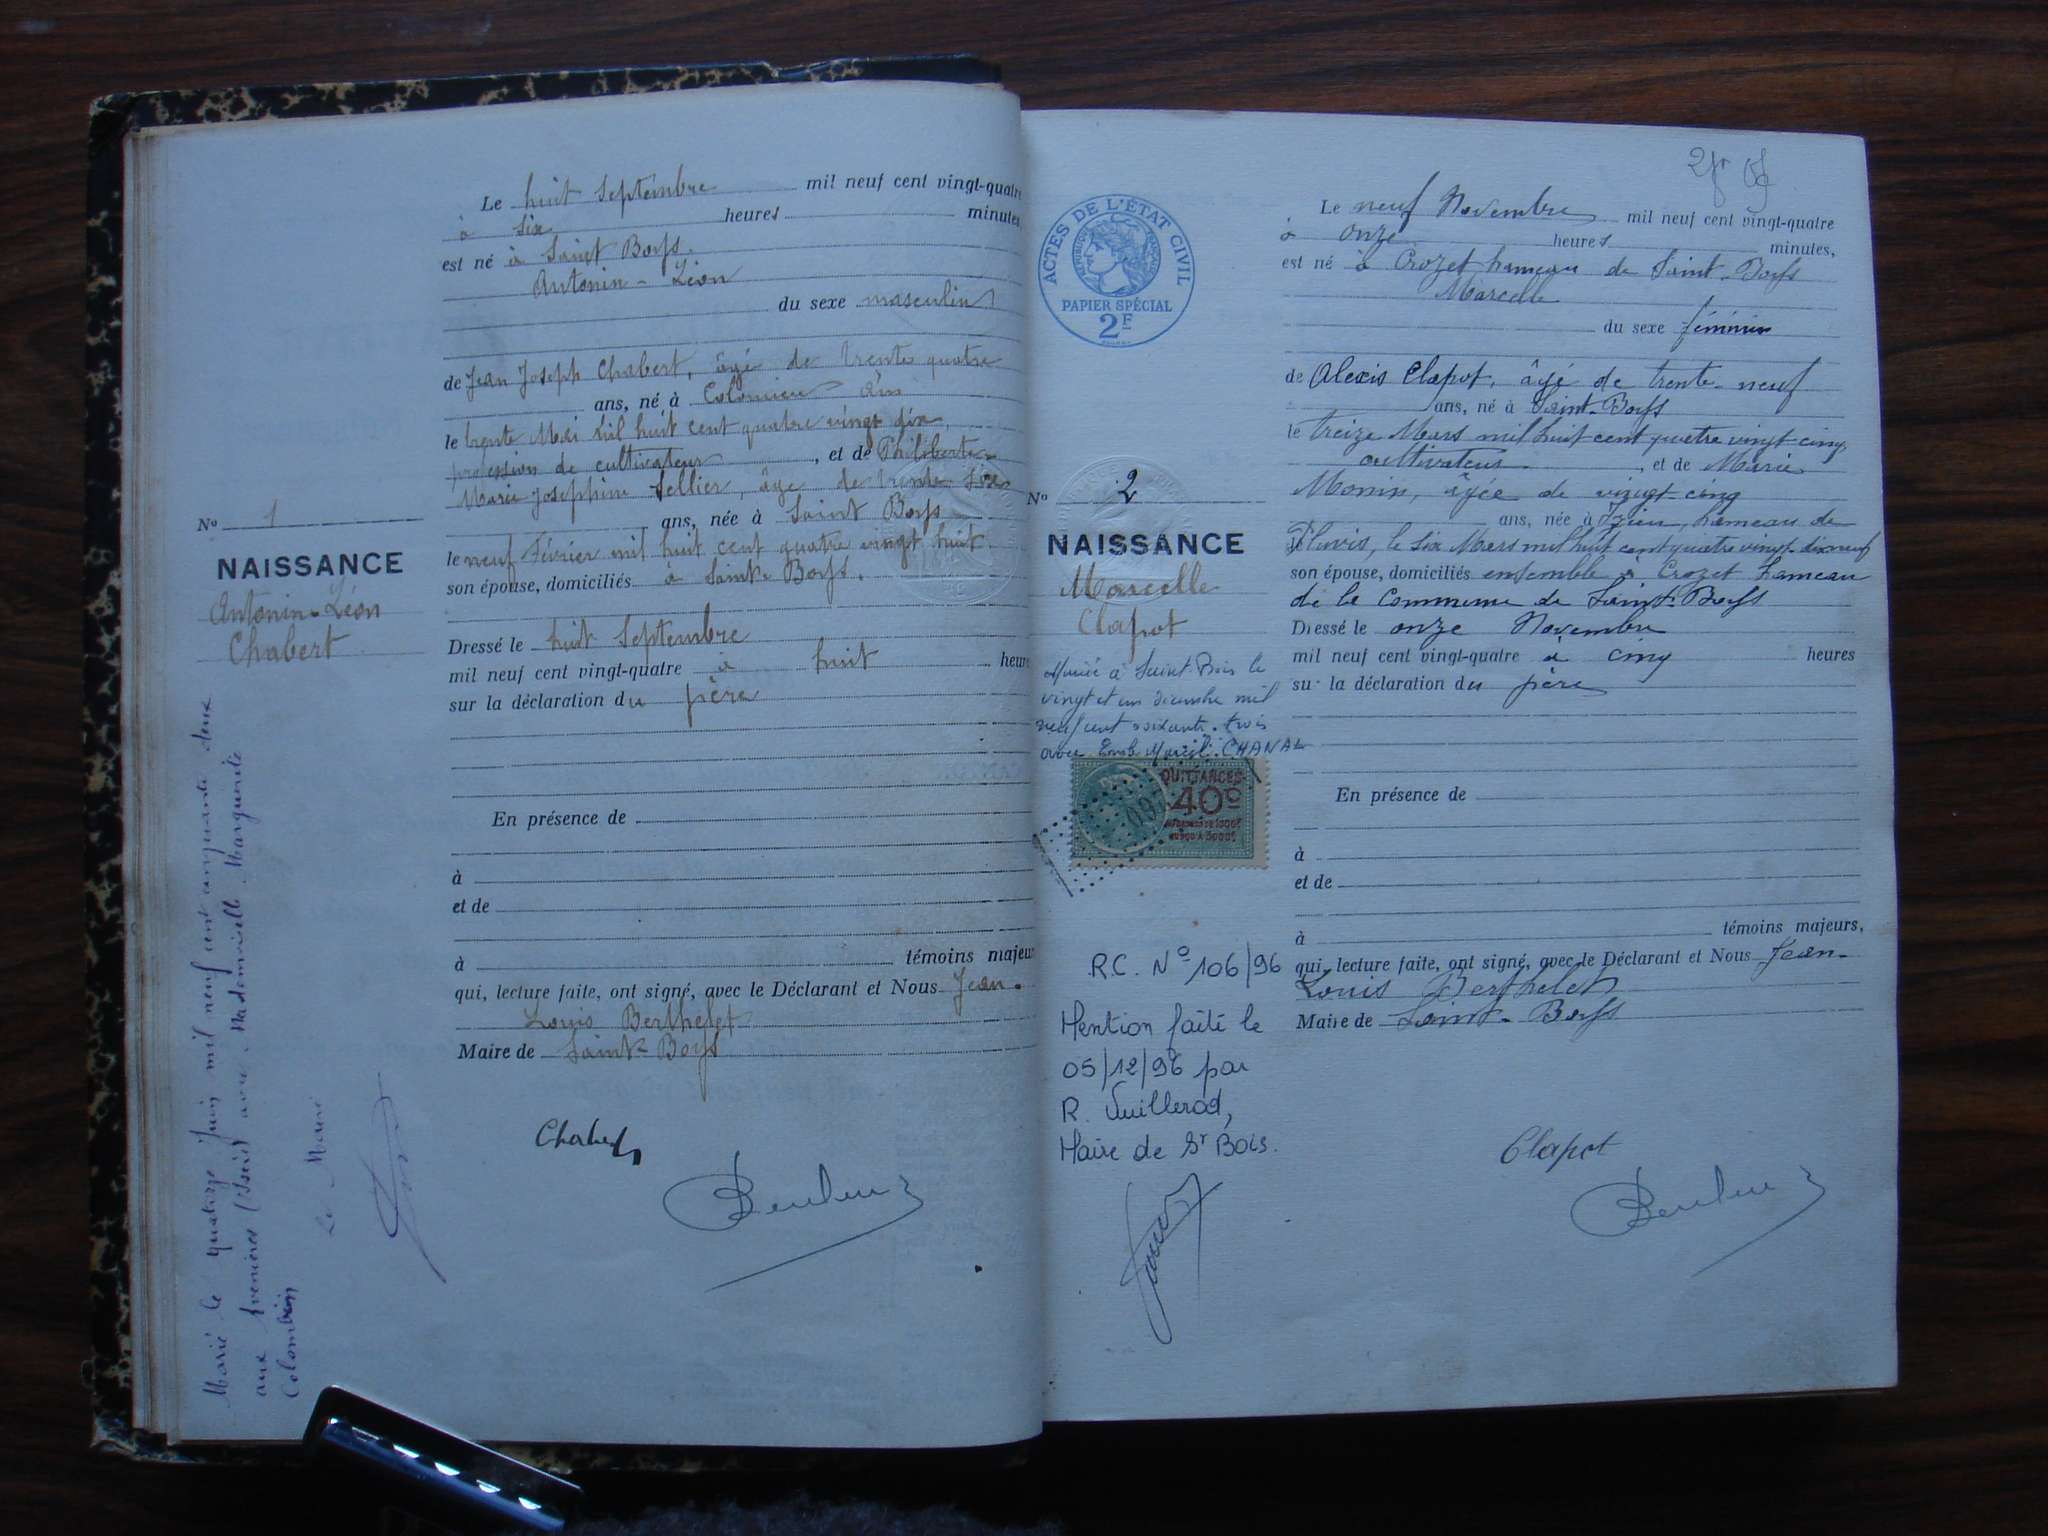 Le huit Septembre mil neuf cent vingt-quatre
à six heures minutes
est né à Saint Boys
Antonin-Léon
du sexe masculin
de Jean Joseph Chabert, âgé de trente quatre
ans, né à Colomieu Ain
le trente Mai mil huit cent quatre vingt dix,
profession de cultivateur, et de Philiberte
Marie Josephine Sellier, âgée de trente six
ans, née à Saint Boys
le neuf Février mil huit cent quatre vingt huit
son épouse, domiciliés à Saint-Boys.
Dressé le huit Septembre
mil neuf cent vingt-quatre à huit heure
sur la déclaration du père
En présence de
à
et de
à témoins majeur
qui, lecture faite, ont signé, avec le Déclarant et Nous Jean-
Louis Berthelet
Maire de Saint-Boys
Chabert
No 1
NAISSANCE
Antonin-Léon
Chabert
Marié le quatorze Juin mil neuf cent cinquante deux
aux Avenières (Isère) avec Mademoiselle Marguerite
Colombin
Le Maire
ACTES DE L'ÉTAT CIVIL
RÉPUBLIQUE FRANÇAISE
PAPIER SPÉCIAL
2F
No 2
NAISSANCE
Marcelle
Clapot
Mariée à Saint Bois le
vingt et un décembre mil
neuf cent soixante-trois
avec CHANAL
QUITTANCES
40c
R.C. No 106/96
Mention faite le
05/12/96 par
R. Vuillerod,
Maire de St Bois.
Le neuf Novembre mil neuf cent vingt-quatre
à onze heures minutes,
est né à Crozet hameau de Saint-Boys
Marcelle
du sexe féminin
de Alexis Clapot, âgé de trente-neuf
ans, né à Saint-Boys
le treize Mars mil huit cent quatre vingt cinq,
cultivateur, et de Marie
Monin, âgée de vingt-cinq
ans, née à Izieu, hameau de
Pluvis, le six Mars mil huit cent quatre vingt-dix neuf
son épouse, domiciliés ensemble à Crozet hameau
de la Commune de Saint-Boys
Dressé le onze Novembre
mil neuf cent vingt-quatre à cinq heures
sur la déclaration du père
En présence de
à
et de
à témoins majeurs,
qui, lecture faite, ont signé, avec le Déclarant et Nous Jean-
Louis Berthelet
Maire de Saint-Boys
Clapot